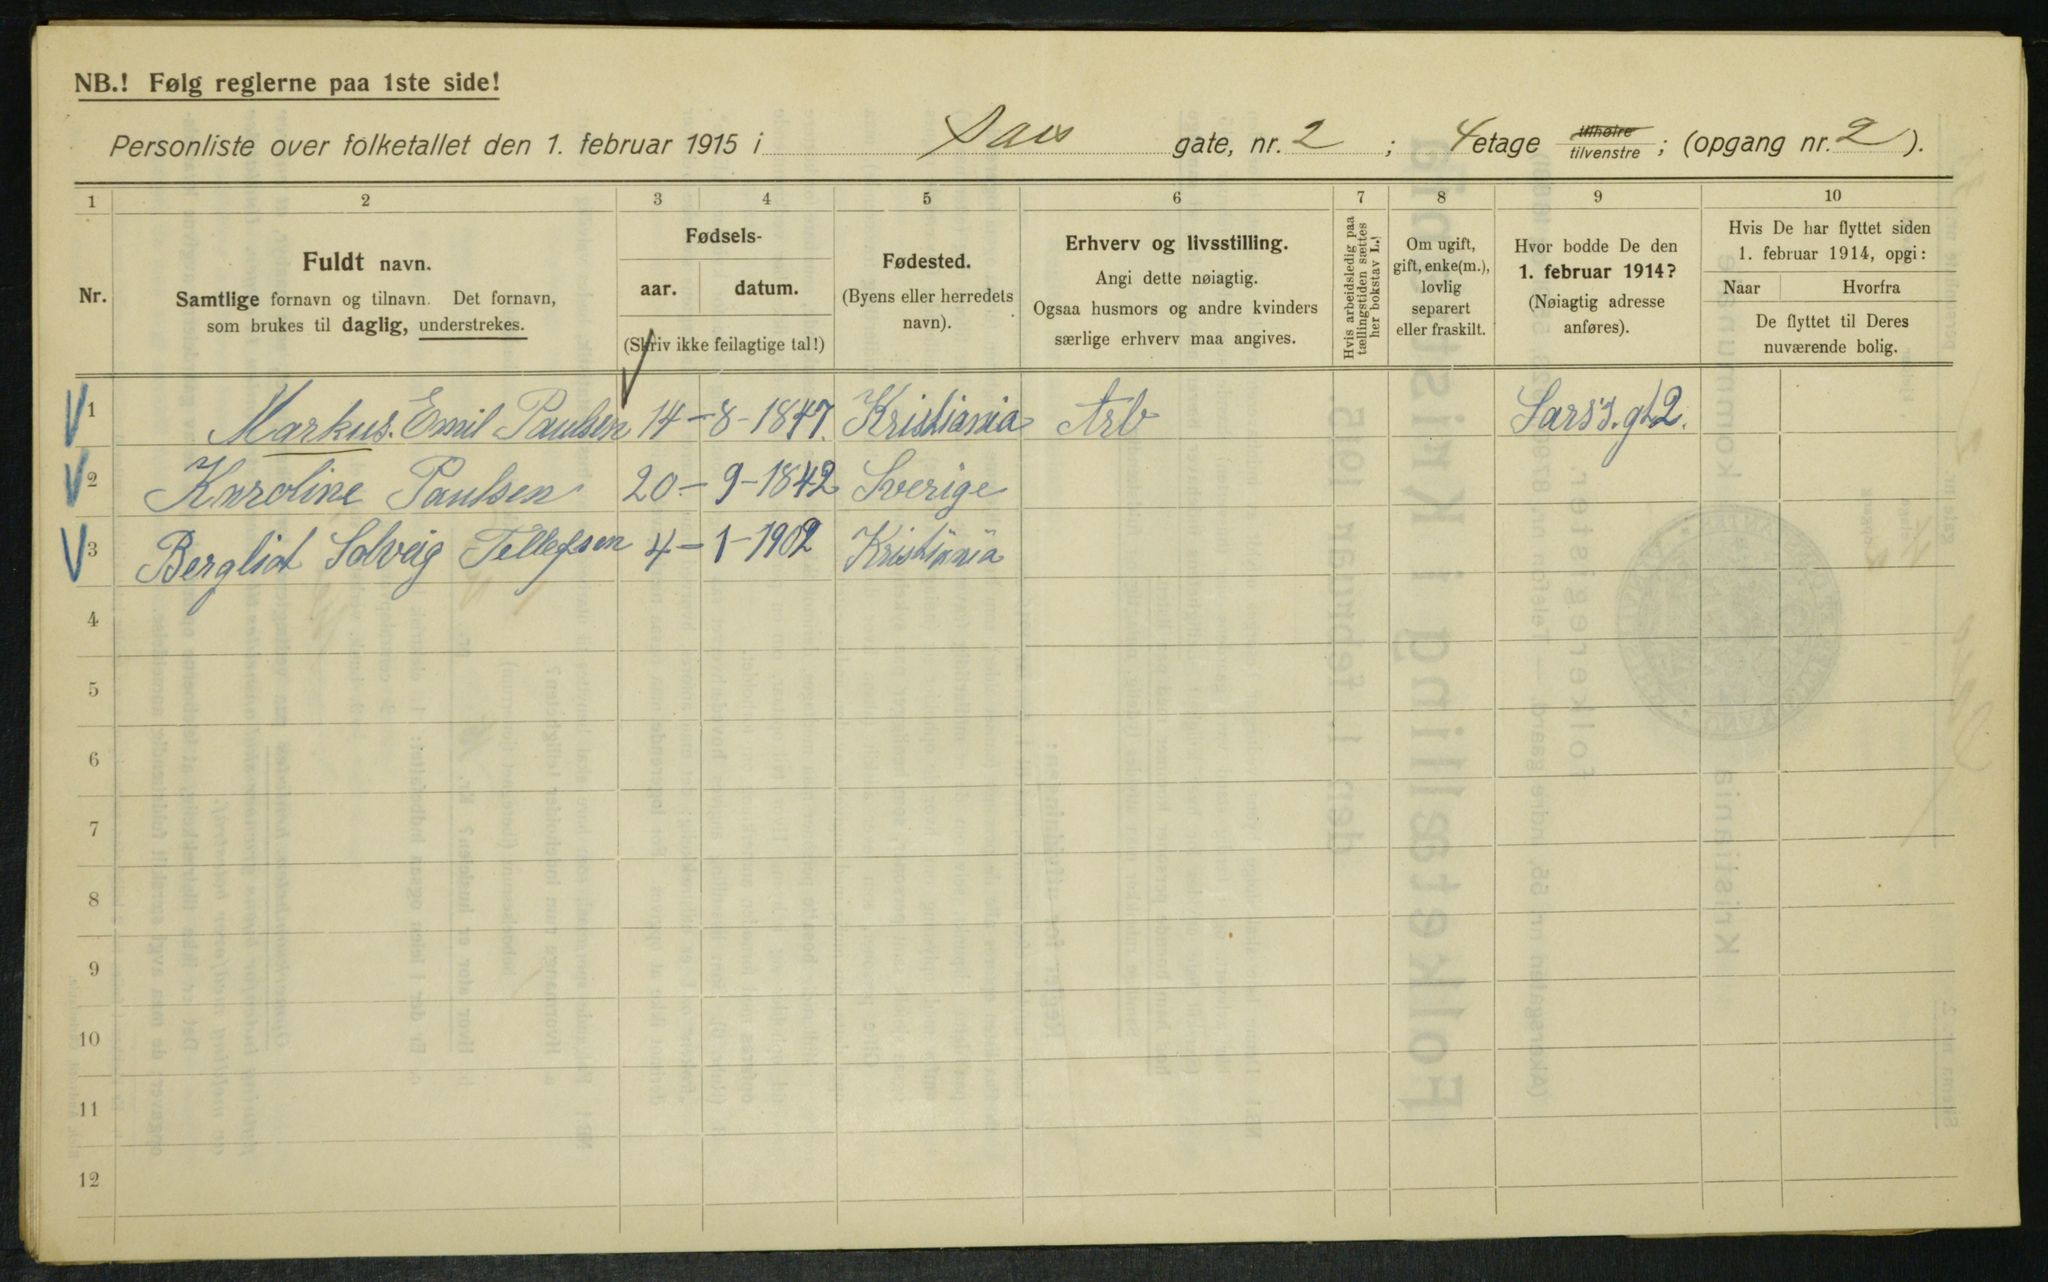 NB.! Følg reglerne paa 1ste side!
Personliste over folketallet den 1. februar 1915 i Sars gate, nr. 2 ; 4 etage tilhøire tilvenstre ; (opgang nr. 2 ).
1 2 3 4 5 6 7 8 9 10
Nr.
Fuldt navn.
Samtlige fornavn og tilnavn. Det fornavn,
som brukes til daglig, understrekes.
Fødsels-
aar. datum.
(Skriv ikke feilagtige tal!)
Fødested.
(Byens eller herredets
navn).
Erhverv og livsstilling.
Angi dette nøiagtig.
Ogsaa husmors og andre kvinders
særlige erhverv maa angives.
Hvis arbeidsledig paa
tællingstiden sættes
her bokstav L.!
Om ugift,
gift, enke(m.),
lovlig
separert
eller fraskilt.
Hvor bodde De den
1. februar 1914?
(Nøiagtig adresse
anføres).
Hvis De har flyttet siden
1. februar 1914, opgi:
Naar Hvorfra
De flyttet til Deres
nuværende bolig.
1 Markus. Emil Paulsen 14-8-1847. Kristiania Arb Sars's. gt 2.
2 Karoline Paulsen 20-9-1842 Sverige
3 Bergliot Solveig Tellefsen 4-1-1902 Kristiania
4
5
6
7
8
9
10
11
12